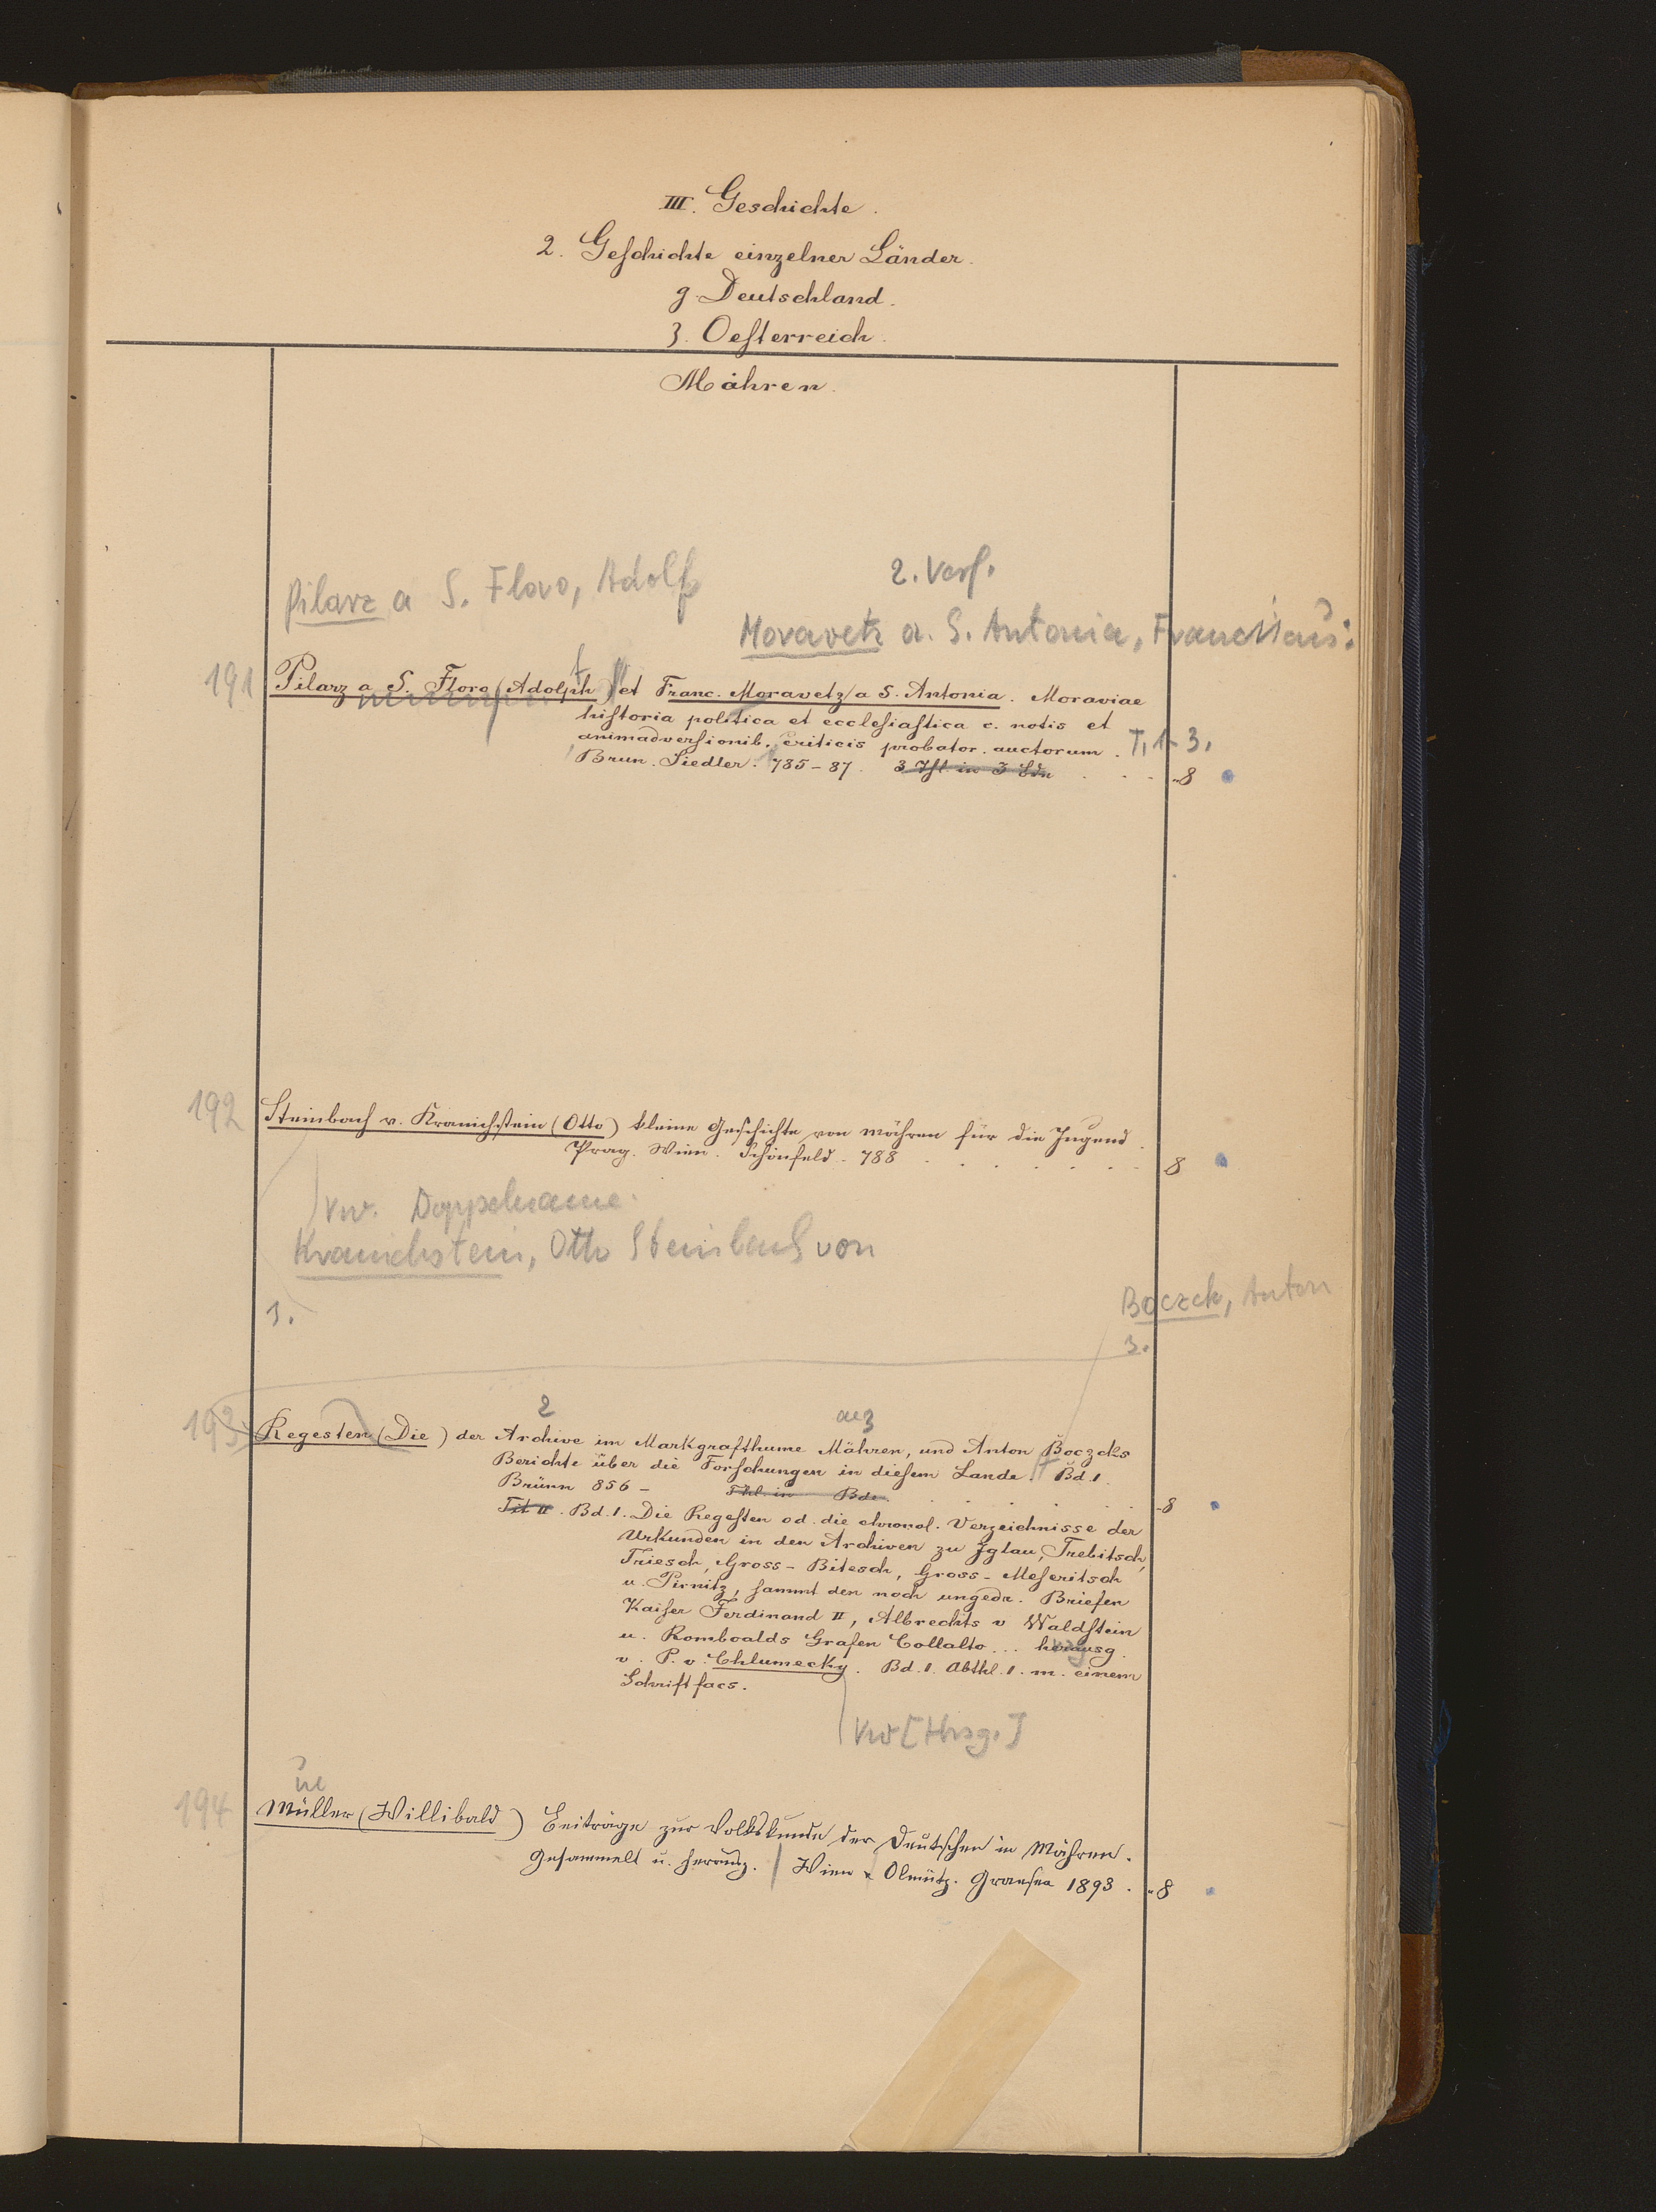 III. Geschichte.
2. Geschichte einzelner Länder.
g. Deutschland.
3. Oesterreich.
Mähren.
Pilarz a S. Floro, Adolf
2. Verf.
Moravetz a. S. Antonia, Franciscus:
191 Pilarz a S. Floro (Adolph) et Franc. Moravetz a S. Antonia. Moraviae
historia politica et ecclesiastica c. notis et
animadversionib. criticis probator. auctorum. T. 1-3.
Brun. Siedler. 785-87. 3 Thl. in 3 Bdn . . . 8
192 Steinbach v. Kranichstein (Otto) kleine Geschichte von Mähren für die Jugend.
Prag. Wien. Schönfeld. 788 . . . . . . . 8
Vw. Doppelname.
Kranichstein, Otto Steinbach von
3.
Boczek, Anton
3.
2 3
193 Regesten (Die) der Archive im Markgrafthume Mähren, und Anton Boczeks
Berichte über die Forschungen in diesem Lande. Bd. 1.
Brünn 856 - Thl. in Bde. . . . . . 8
Tit II. Bd. 1. Die Regesten od. die chronol. Verzeichnisse der
Urkunden in den Archiven zu Iglau, Trebitsch,
Triesch, Gross-Bitesch, Gross-Meseritsch
u. Pirnitz, sammt den noch ungedr. Briefen
Kaiser Ferdinand II, Albrechts v Waldstein
u. Romboalds Grafen Collalto... herausg.
v. P. v. Chlumecky. Bd. 1. Abthl. 1. m. einem
Schriftfacs.
Vw [Hrsg.]
ue
194 Müller (Willibald) Beiträge zur Volkskunde der Deutschen in Mähren.
Gesammelt u. herausg. Wien & Olmütz. Graeser 1893. 8